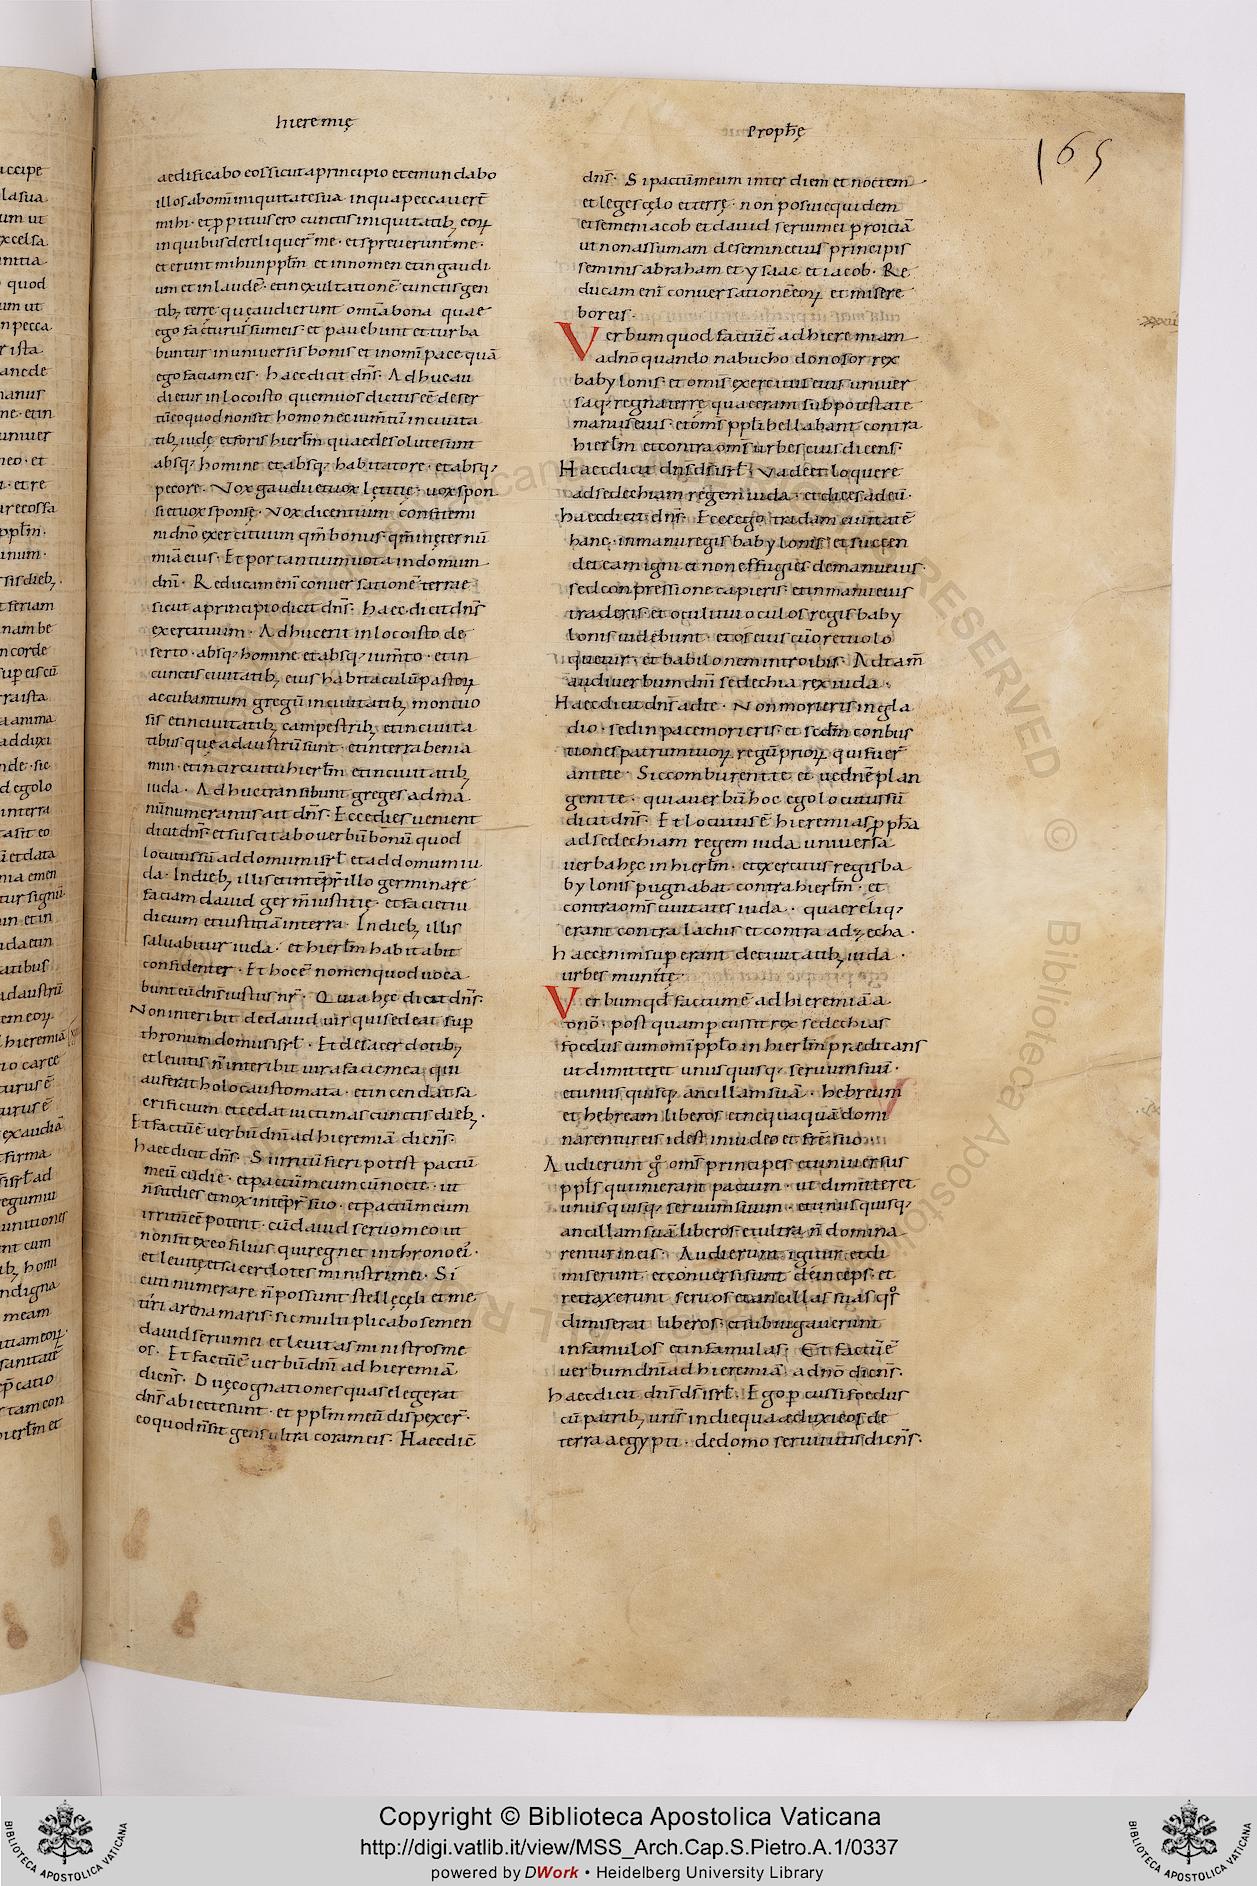 hieremię
prophę
165
aedificabo eos sicut a principio et emundabo
illos ab om̄i iniquitate sua in qua peccaver̄t
mihi · et ꝓpitius ero cunctis iniquitatibꝫ eoꝝ
in quibus dereliquer̄ me · et spreverunt me ·
et erunt mihi in pp̄lm̄ et in nomen et in gaudi
um et in laudē · et in exultationē cunctis gen
tibꝫ terre quę audierunt omīa bona quae
ego facturus sum eis · et pavebunt et turba
buntur in universis bonis et in om̄i pace quā
ego faciam eis · haec dicit dn̄s · Adhuc au
dietur in loco isto quem vos dicitis eē deser
tū eo quod non sit homo nec ium̄tū in civita
tibꝫ iudę et foris hierl̄m quae desolate sunt
absqꝫ homine et absqꝫ habitatore · et absqꝫ
pecore · Vox gaudii et vox lętitię · vox spon
si et vox sponsę · Vox dicentium confitemi
ni dn̄o exercituum qm̄ bonus · qm̄ in ęternū
mīa eius · Et portantium vota in domum
dn̄i · Reducam enī conversationē terrae
sicut a principio dicit dn̄s · haec dicit dn̄s
exercituum · Adhuc erit in loco isto de
serto · absqꝫ homine et absqꝫ ium̄to · et in
cunctis civitatibꝫ eius habitaculū pastoꝝ
accubantium gregū in civitatibꝫ montuo
sis et in civitatibꝫ campestribꝫ et in civita
tibus que ad austrū sunt · et in terra benia
min · et in circuitu hierl̄m et in civitatibꝫ
iuda · Adhuc transibunt greges ad ma
nū numerantis ait dn̄s · Ecce dies venient
dicit dn̄s et suscitabo verbū bonū quod
locutus sū ad domum isrl̄ et ad domum iu
da · In diebꝫ illis et in tēpr̄ illo germinare
faciam david germ̄ iustitię · et faciet iu
dicium et iustitiā in terra · In diebꝫ illis
salvabitur iuda · et hierl̄m habitabit
confidenter · Et hoc ē nomen quod voca
bunt eū dn̄s iustus nr̄ · Quia hęc dicit dn̄s ·
Non interibit de david vir qui sedeat sup̄
thronum domus isrl̄ · Et de sacerdotibꝫ
et levitis n̄ interibit vir a facie mea · qui
auferat holocaustomata · et incendat sa
crificium et cedat victimas cunctis diebꝫ ·
Et factū ē verbū dn̄i ad hieremiā dicen̄s ·
haec dicit dn̄s · Si irritū fieri potest pactū
meū cū die · et pactū meum cū nocte · ut
n̄ sit dies et nox in tēpr̄ suo · et pactū meum
irritū eē poterit · cū david servo meo ut
non sit ex eo filius qui regnet in throno ei᷒ ·
et levitę et sacerdotes ministri mei · Si
cuti numerare n̄ possunt stellę cęli et me
tiri arena maris · sic multiplicabo semen
david servi mei et levitas ministros me
os · Et factū ē verbū dn̄i ad hieremiā
dicen̄s · Duę cognationes quas elegerat
dn̄s abiectę sunt · et pp̄lm meū dispexer̄ ·
eo quod n̄ sit gens ultra coram eis · Haec dic̄
dn̄s · Si pactū meum inter diem et noctem
et leges cęlo et terrę · non posui equidem
et semen iacob et david servi mei proiciā
ut non assumam de semine eius principis
seminis abraham et ysaac et iacob · Re
ducam enī conversationē eoꝝ et misere
bor eis ·
Verbum quod factū ē ad hieremiam
a dn̄o quando nabuchodonosor rex
babylonis · et om̄is exercitus eius univer
saqꝫ regna terrę quae erant sub potestate
manus eius · et om̄s pp̄li bellabant contra
hierl̄m et contra om̄s urbes eius dicens ·
Haec dicit dn̄s ds̄ isrl̄ · Vade et loquere
ad sedechiam regem iuda · et dices ad eū ·
haec dicit dn̄s · Ecce ego tradam civitatē
hanc · in manu regis babylonis · et succen
det eam igni et non effugies de manu eius ·
sed conpressione capieris · et in manu eius
traderis · et oculi tui oculos regis baby
lonis videbunt · et os eius cū ore tuo lo
quetur · et babilonem introibis · Adtam̄
audi verbum dn̄i sedechia rex iuda ·
Haec dicit dn̄s ad te · Non morieris in gla
dio · sed in pace morieris · et secdm̄ conbus
tiones patrum tuoꝝ regū prioꝝ qui fuer̄
ante te · Sic comburent te et ve dn̄e plan
gent te · quia verbū hoc ego locutus sū
dicit dn̄s · Et locutus ē hieremias ꝓpha
ad sedechiam regem iuda universa
verba hęc in hierl̄m · et exercitus regis ba
bylonis pugnabat contra hierl̄m · et
contra om̄s civitates iuda · quae reliqꝫ
erant contra lachis et contra adzecha ·
haec enim sup̄erant de civitatibꝫ iuda ·
urbes munitę ·
Verbum qd̄ factum ē ad hieremiā a
dn̄o · post quam ꝑcussit rex sedechias
foedus cum om̄i pp̄lo in hierl̄m prædicans
ut dimitteret unus quisqꝫ servum suū ·
et unus quisqꝫ ancillam suā · hebreum
et hebream liberos et nequaquā domi
narentur eis id est in iudeo et fr̄e suo ·
Audierunt gͦ om̄s principes et universus
ppl̄s qui inierant pactum · ut dimitteret
unus quisqꝫ servum suum · et unus quisqꝫ
ancillam suā liberos et ultra n̄ domina
rentur in eis · Audierunt igitur et di
miserunt · et conversi sunt deinceps · et
retraxerunt servos et ancillas suas qͦs
dimiserat liberos · et subiugaverunt
in famulos et in famulas · Et factū ē
verbum dn̄i ad hieremiā a dn̄o dicen̄s ·
haec dicit dn̄s ds̄ isrl̄ · Ego ꝑcussi foedus
cū patribꝫ vr̄is in die qua eduxi eos de
terra aegypti · de domo servitutis dicen̄s ·
Copyright © Biblioteca Apostolica Vaticana
http://digi.vatlib.it/view/MSS_Arch.Cap.S.Pietro.A.1/0337
powered by DWork • Heidelberg University Library